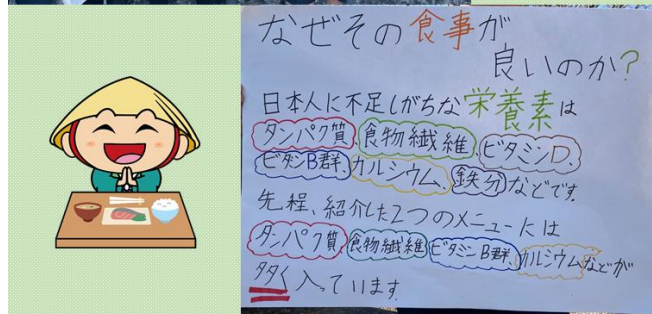 なぜその食事が
良いのか?
日本人に不足しがちな栄養素は
タンパク質、食物繊維、ビタミンD、
ビタミンB群、カルシウム、鉄分などです。
先程、紹介した2つのメニューには
タンパク質、食物繊維、ビタミンB群、カルシウムなどが
多く入っています。